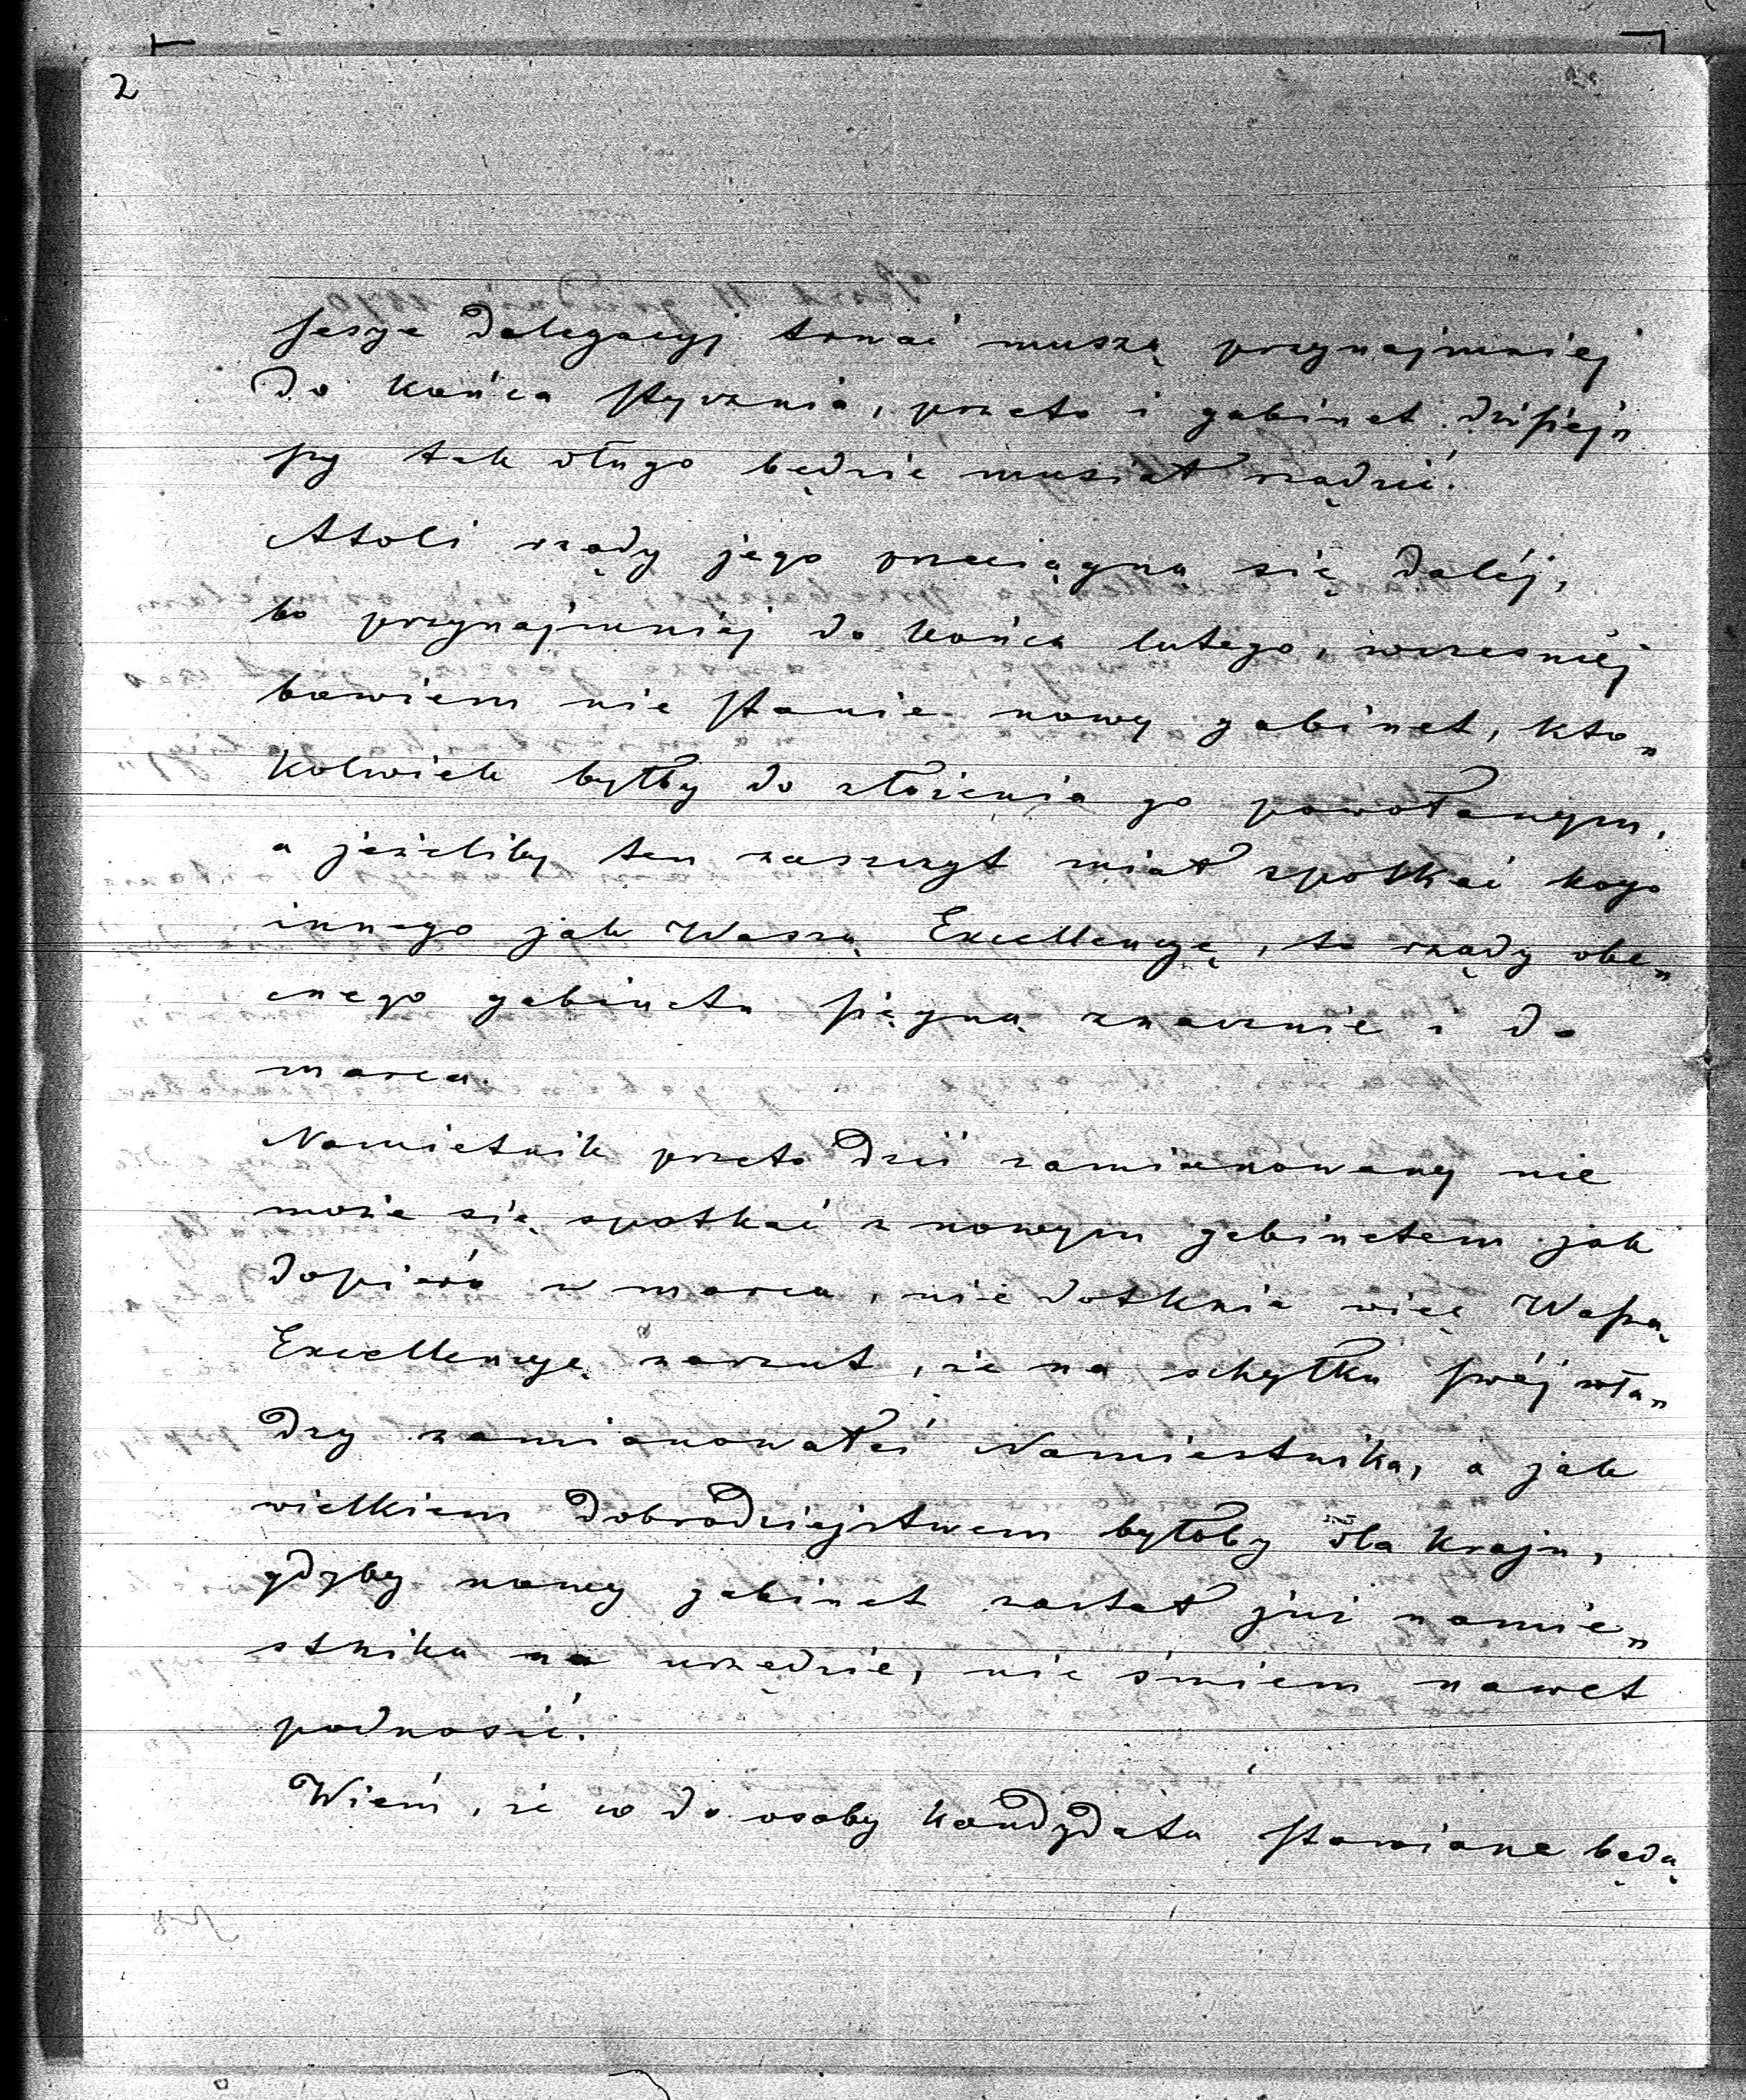 2
sesye Delegacyj trwać muszą przynajmniej
do końca stycznia, przeto i gabinet dzisiej„
szy tak długo będzie musiał rządzić.
Atoli rządy jego przeciągną się daléj,
bo przynajmniej do końca lutego, wcześniéj
bowiem nie stanie nowy gabinet, kto„
kolwiek byłby do złożenia go powołanym,
a jeżeliby ten zaszczyt miał spotkać kogo
innego jak Waszą Excellencyę, to rządy obe„
cnego gabinetu sięgną znacznie i do
marca.
Namiestnik przeto dziś zamianowany nie
może się spotkać z nowym gabinetem jak
dopiero w marcu, nie dotknie więc Waszą
Excellencyę zarzut, że na schyłku swéj wła„
dzy zamianowałeś Namiestnika, a jak
wielkiem dobrodziejstwem byłoby dla kraju,
gdyby nowy gabinet zastał już namie„
stnika na urzędzie, nie śmiem nawet
podnosić.
Wiem, że co do osoby kandydata stawiane będą